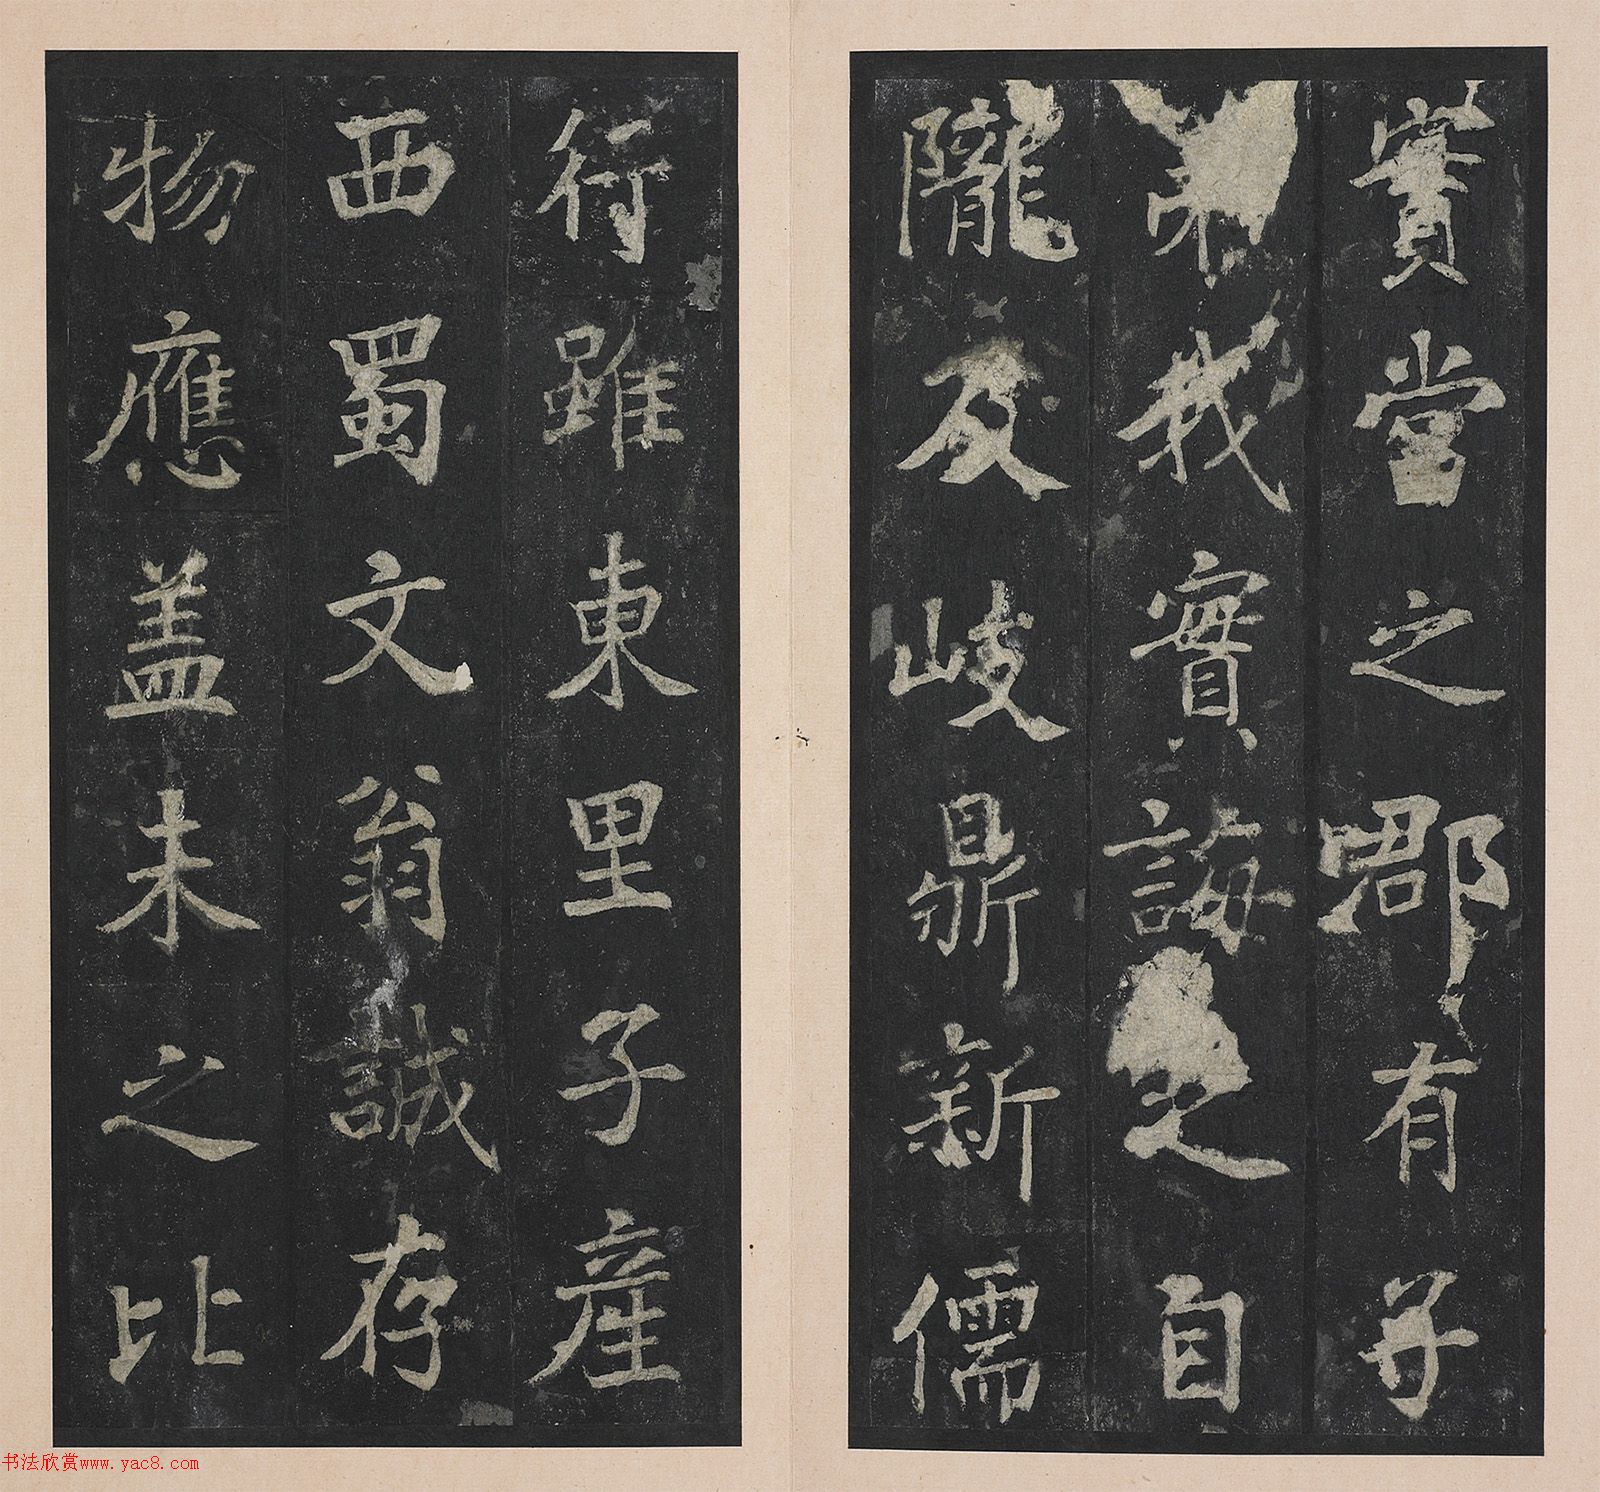 實當之郡有子
弟我實誨之自
隴及岐鼎新儒
行雖東里子產
西蜀文翁誠存
物應盖未之比
书法欣赏www.yac8.com